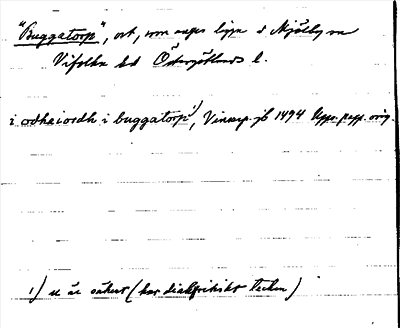 "Buggatorp", ort, som anges ligga i Mjölby sn
Vifolka hd Östergötlands l.
i odhaiordh i buggatorp¹⁾, Vinarp jb 1494 Upps. papp. orig.
1) u är osäkert (har diakritiskt tecken)